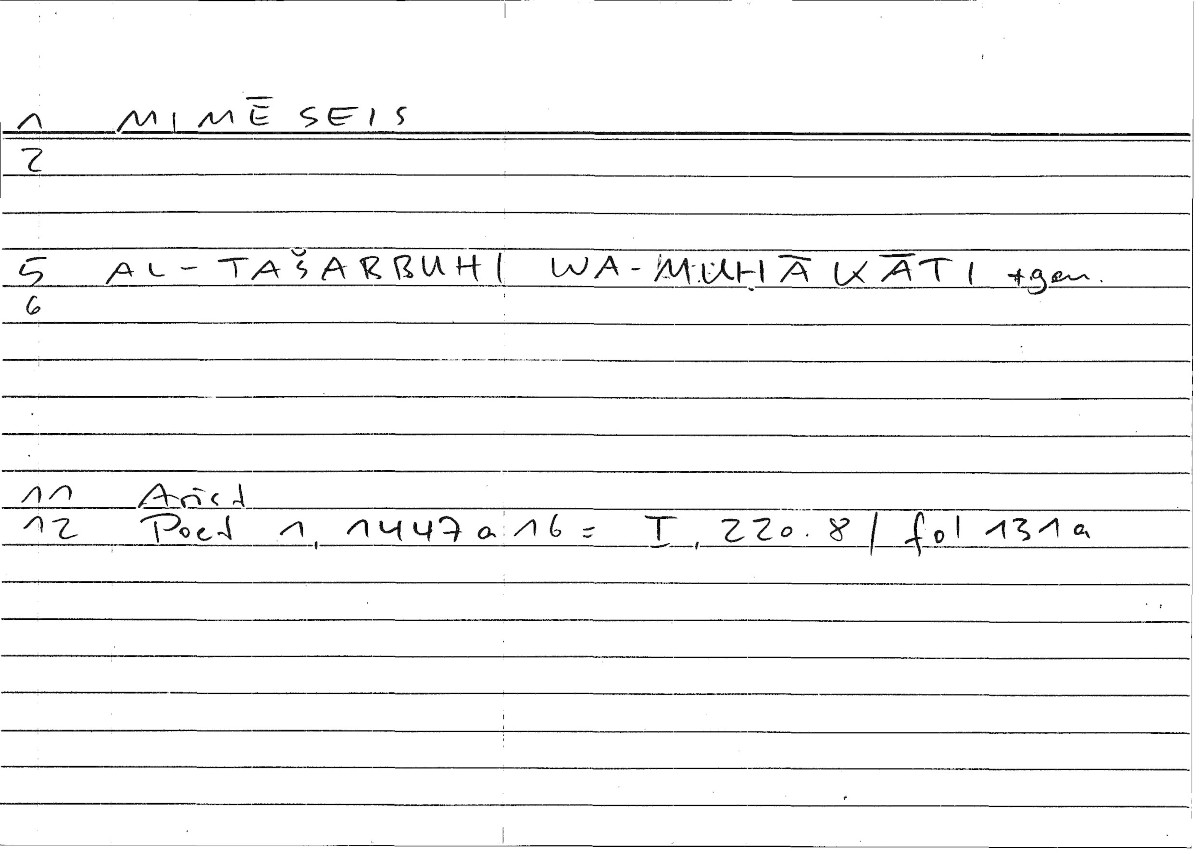 1 MIMĒSEIS
2
5 AL-TAŠABBUHI WA-MUḤĀKĀTI +gen.
6
11 Arist
12 Poet 1, 1447a16 = I, 220.8 / fol 131a